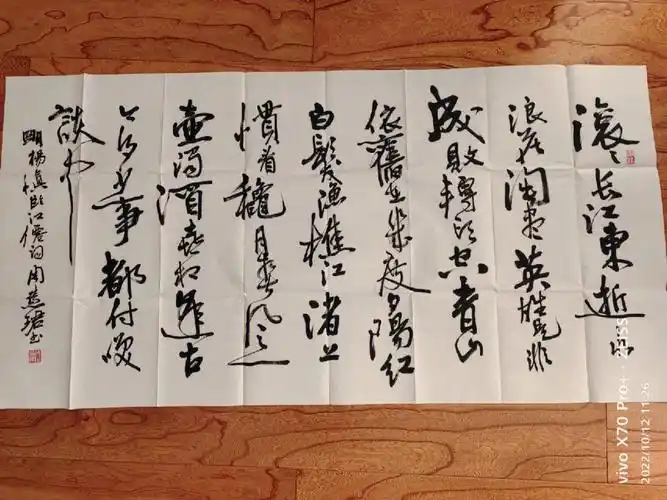 滚〻长江東逝水
浪花淘盡英雄是非
成敗轉頭空青山
依舊在幾度夕陽紅
白髮漁樵江渚上
慣看龝月春風一
壺濁酒喜相逢古
今多少事都付咲
談中
明楊慎臨江僊詞周珺书
vivo X70 Pro+ · ZEISS
2022/10/12 11:26